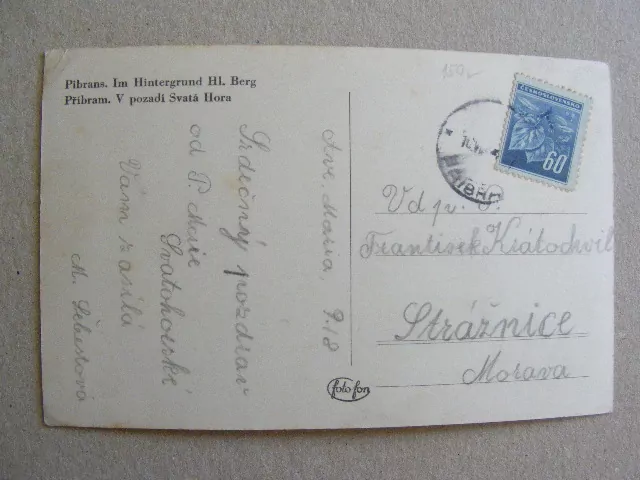 Pibrans. Im Hintergrund Hl. Berg
Příbram. V pozadí Svatá Hora
150,-
ČESKOSLOVENSKO
60
Ave, Maria, 9.18
Srdečný pozdrav
od P. Marie
Svatohorské
Vám zasílá
M. Šebestová
Vd p.
František Krátochvil
Strážnice
Morava
foto-fon